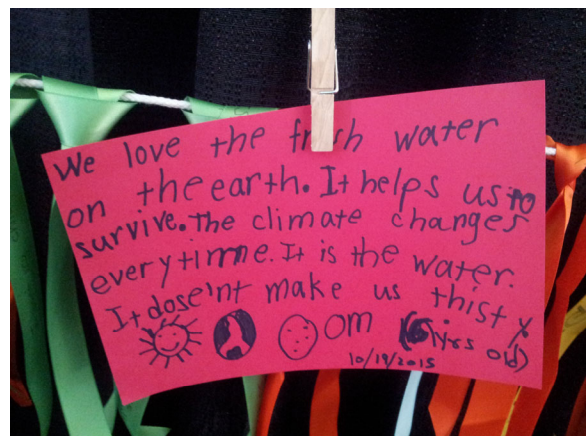 We love the fresh water
on the earth. It helps us to
survive. The climate changes
every time. It is the water.
It dose'nt make us thisty.
om (6 yrs old)
10/19/2015